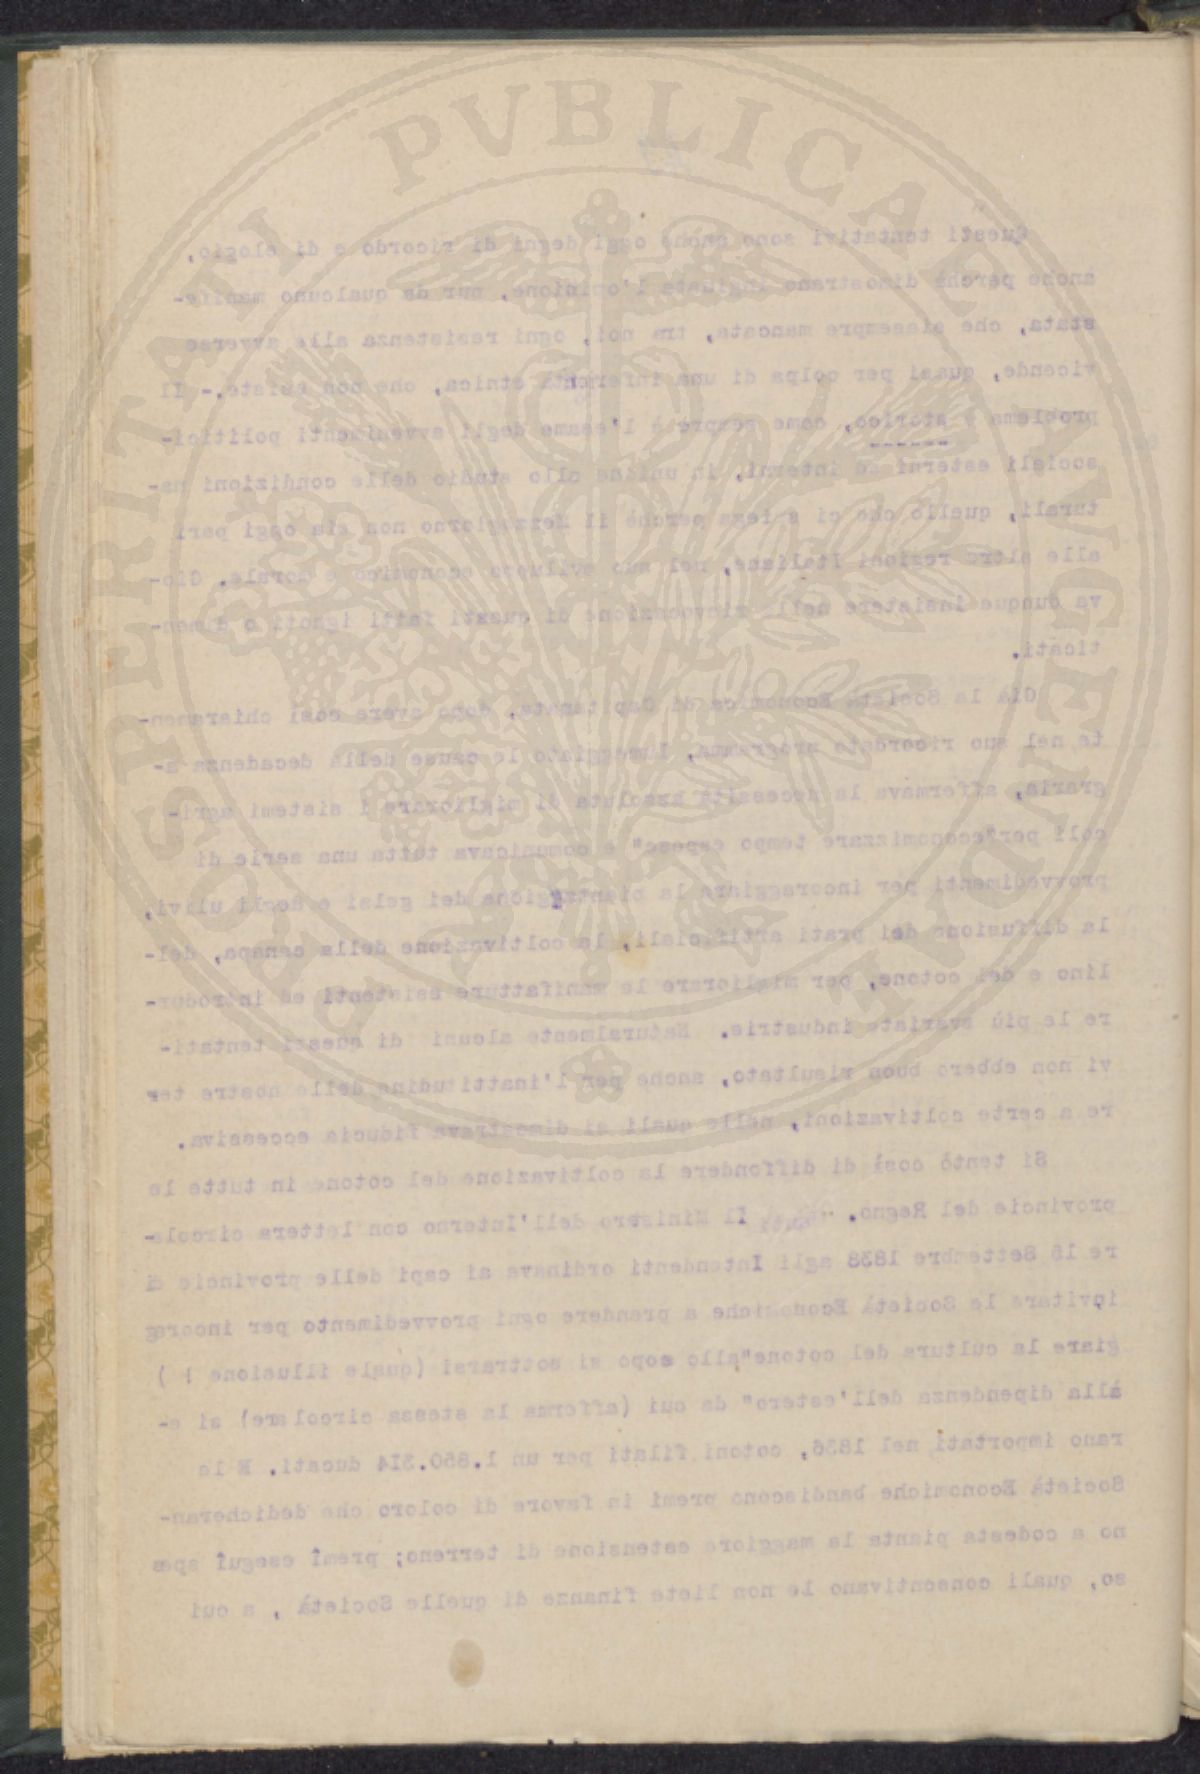 PROSPERITATI PVBLICAE AVGENDAE
Questi tentativi sono anche oggi degni di ricordo e di elogio,
anche perchè dimostrano ingiusta l'opinione, pur da qualcuno manife-
stata, che siasempre mancata, tra noi, ogni resistenza alle avverse
vicende, quasi per colpa di una inferiorità etnica, che non esiste.- Il
problema è storico, come sempre è l'esame degli avvenimenti politici-
sociali esterni ed interni, in unione allo studio delle condizioni na-
turali, quello che ci spiega perchè il Mezzogiorno non sia oggi pari
alle altre regioni Italiane, nel suo sviluppo economico e morale. Gio-
va dunque insistere nella rievocazione di questi fatti ignoti o dimen-
ticati.
Già la Società Economica di Capitanata, dopo avere così chiaramen-
te nel suo ricordato programma, lumeggiato le cause della decadenza a-
graria, affermava la necessità assoluta di migliorare i sistemi agri-
coli per"economizzare tempo espese" e comunicava tutta una serie di
provvedimenti per incoraggiare la piantagione dei gelsi e degli ulivi,
la diffusione dei prati artificiali, la coltivazione della canapa, del-
lino e del cotone, per migliorare le manifatture esistenti ed introdur-
re le più svariate industrie. Naturalmente alcuni di questi tentati-
vi non ebbero buon risultato, anche per l'inattitudine delle nostre ter
re a certe coltivazioni, nelle quali si dimostrava fiducia eccessiva.
Si tentò così di diffondere la coltivazione del cotone in tutte le
provincie del Regno. Il Ministro dell'Interno con lettera circola-
re 15 Settembre 1838 agli Intendenti ordinava ai capi delle provincie d
invitare le Società Economiche a prendere ogni provvedimento per incorag
giare la cultura del cotone"allo scopo si sottrarsi (quale illusione ! )
alla dipendenza dell'estero" da cui (afferma la stessa circolare) si e-
rano importati nel 1836, cotoni filati per un 1.850.314 ducati. E le
Società Economiche bandiscono premi in favore di coloro che dedicheran-
no a codesta pianta la maggiore estensione di terreno; premî eseguî spes
so, quali consentivano le non liete finanze di quelle Società , a cui